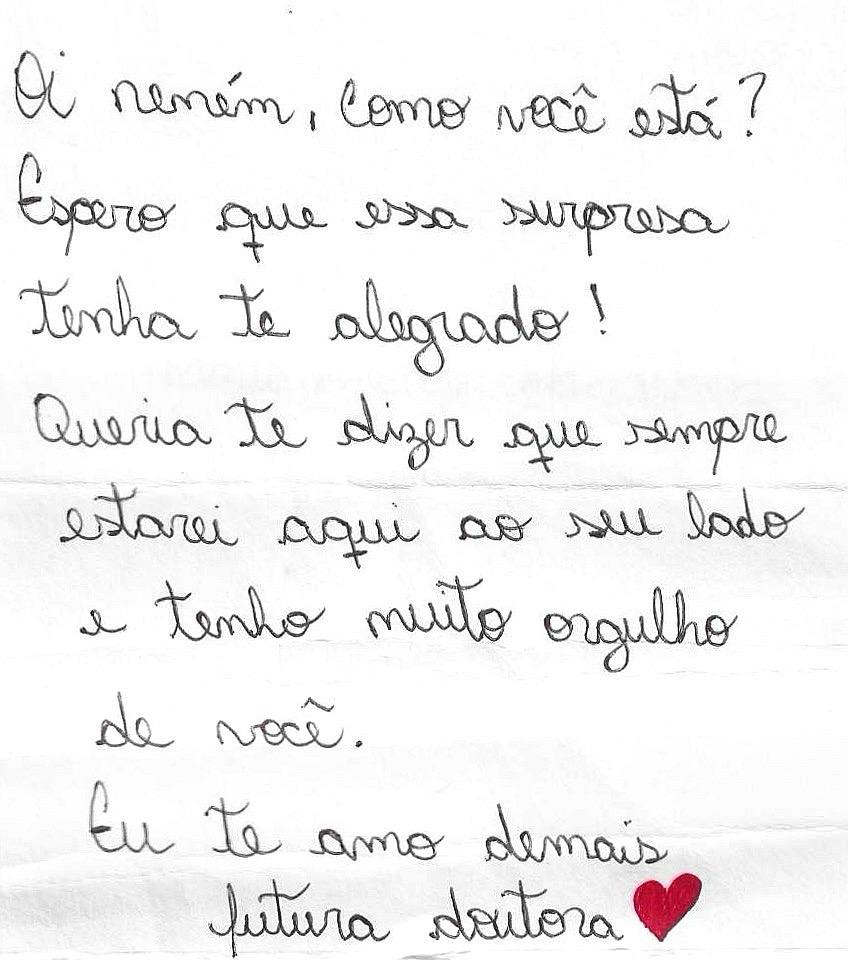 Oi neném, como você está?
Espero que essa surpresa
tenha te alegrado!
Queria te dizer que sempre
estarei aqui ao seu lado
e tenho muito orgulho
de você.
Eu te amo demais
futura doutora ♥